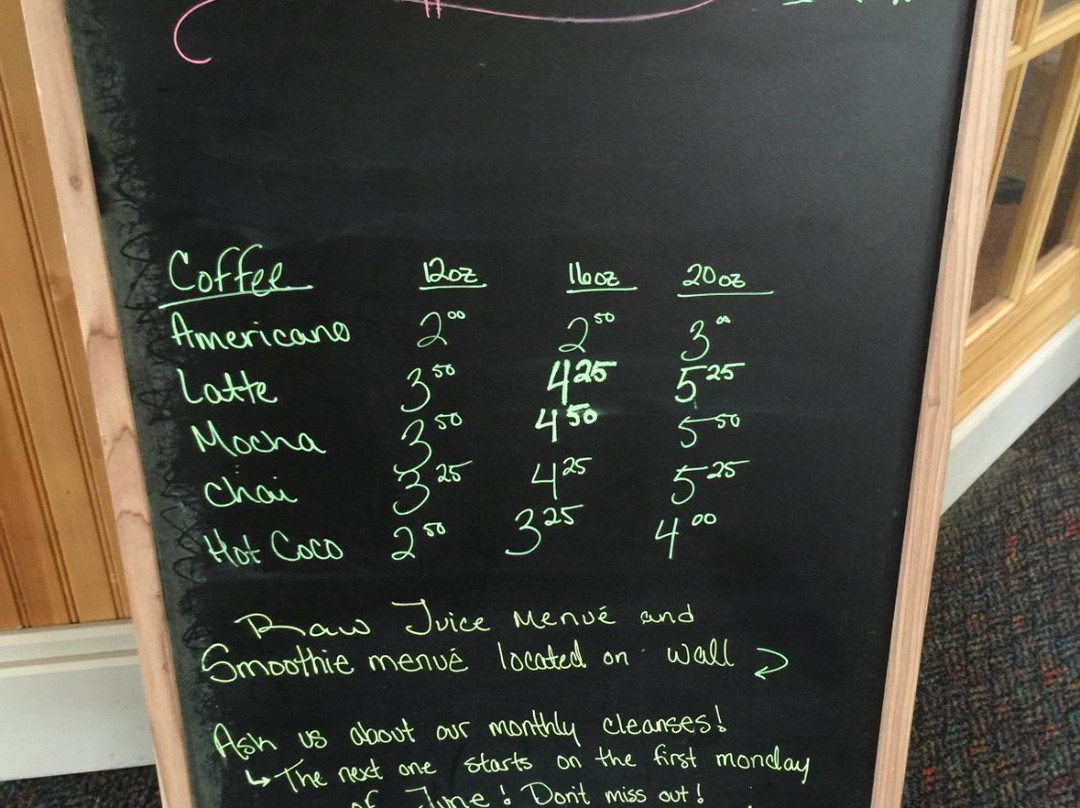 Coffee 12oz 16oz 20oz
Americano 2⁰⁰ 2⁵⁰ 3⁰⁰
Latte 3⁵⁰ 4²⁵ 5²⁵
Mocha 3⁵⁰ 4⁵⁰ 5⁵⁰
Chai 3²⁵ 4²⁵ 5²⁵
Hot Coco 2⁵⁰ 3²⁵ 4⁰⁰
Raw Juice Menué and
Smoothie menué located on wall
Ask us about our monthly cleanses!
↳ The next one starts on the first monday
of June! Don't miss out!